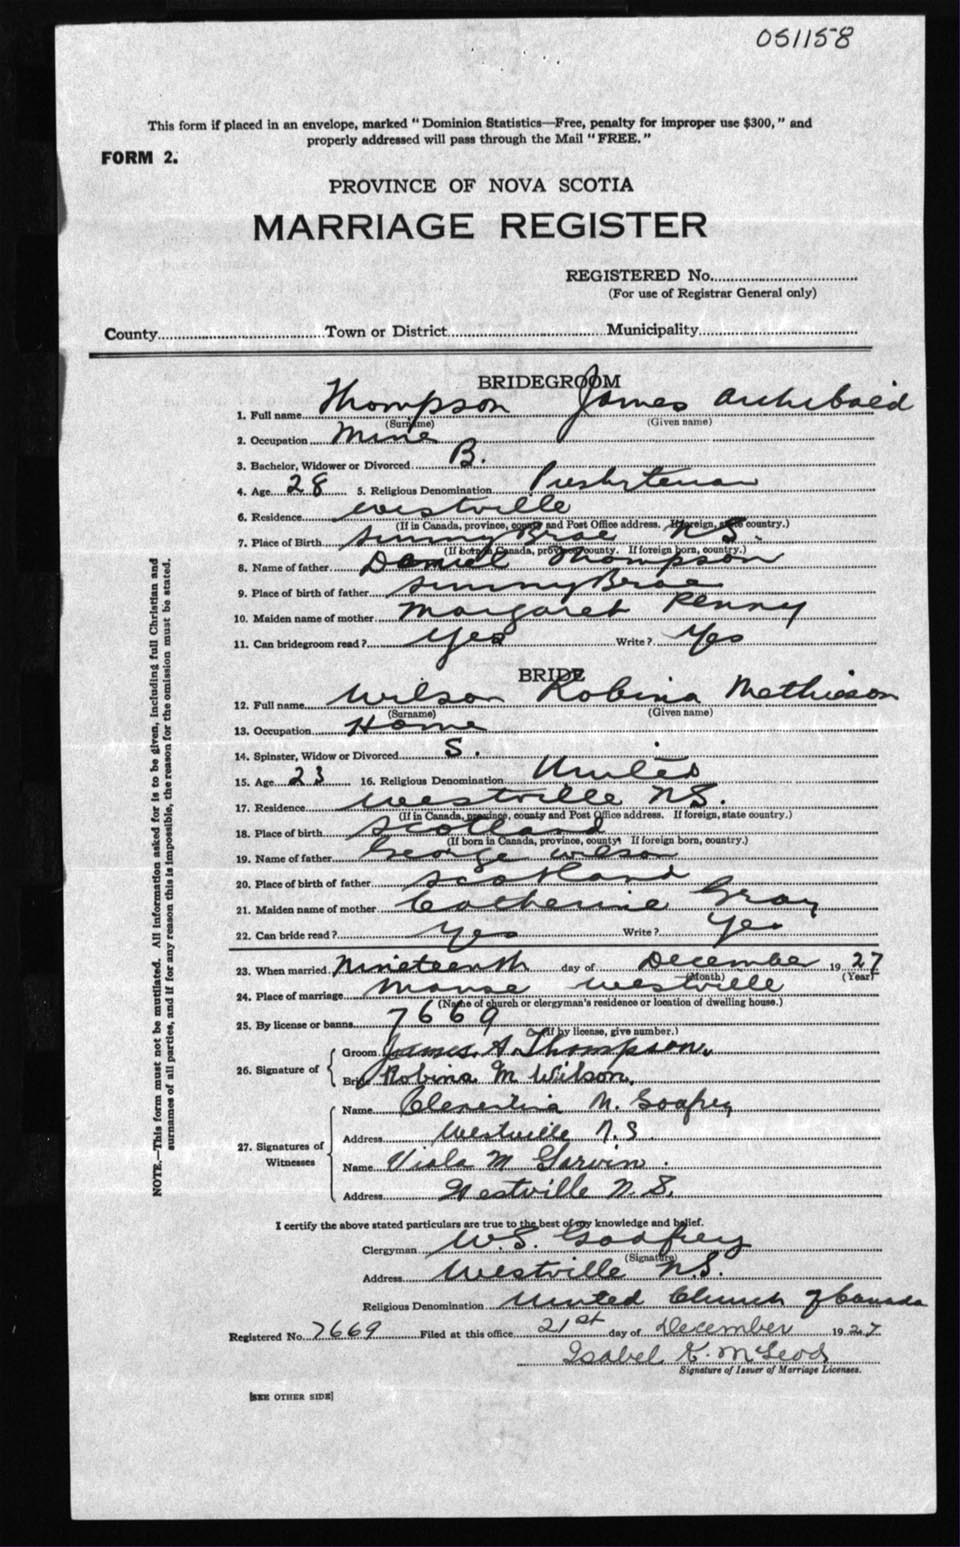 051158
This form if placed in an envelope, marked "Dominion Statistics—Free, penalty for improper use $300," and
properly addressed will pass through the Mail "FREE."
FORM 2.
PROVINCE OF NOVA SCOTIA
MARRIAGE REGISTER
REGISTERED No.
(For use of Registrar General only)
County Town or District Municipality
BRIDEGROOM
1. Full name Thompson James Archibald
(Surname) (Given name)
2. Occupation Mine
3. Bachelor, Widower or Divorced B.
4. Age 28 5. Religious Denomination Presbyterian
6. Residence Westville
(If in Canada, province, county and Post Office address. If foreign, state country.)
7. Place of Birth Sunny Brae N.S.
(If born in Canada, province, county. If foreign born, country.)
8. Name of father Daniel Thompson
9. Place of birth of father Sunny Brae
10. Maiden name of mother Margaret Penny
11. Can bridegroom read? Yes Write? Yes
BRIDE
12. Full name Wilson Robina Mathieson
(Surname) (Given name)
13. Occupation Home
14. Spinster, Widow or Divorced S.
15. Age 23 16. Religious Denomination United
17. Residence Westville N.S.
(If in Canada, province, county and Post Office address. If foreign, state country.)
18. Place of birth Scotland
(If born in Canada, province, county. If foreign born, country.)
19. Name of father George Wilson
20. Place of birth of father Scotland
21. Maiden name of mother Catherine Gray
22. Can bride read? Yes Write? Yes
23. When married Nineteenth day of December 1927
(Month) (Year)
24. Place of marriage Manse Westville
(Name of church or clergyman's residence or location of dwelling house.)
25. By license or banns 7669
(If by license, give number.)
26. Signature of
Groom James A. Thompson.
Bride Robina M Wilson.
27. Signatures of Witnesses
Name Clementina M. Godfrey
Address Westville N.S.
Name Viola M Garvin.
Address Westville N.S.
I certify the above stated particulars are true to the best of my knowledge and belief.
Clergyman W.S. Godfrey
(Signature)
Address Westville N.S.
Religious Denomination United Church of Canada
Registered No. 7669 Filed at this office 21st day of December 1927.
Isabel K. McLeod
Signature of Issuer of Marriage Licenses.
[SEE OTHER SIDE]
NOTE.—This form must not be mutilated. All information asked for is to be given, including full Christian and
surnames of all parties, and if for any reason this is impossible, the reason for the omission must be stated.